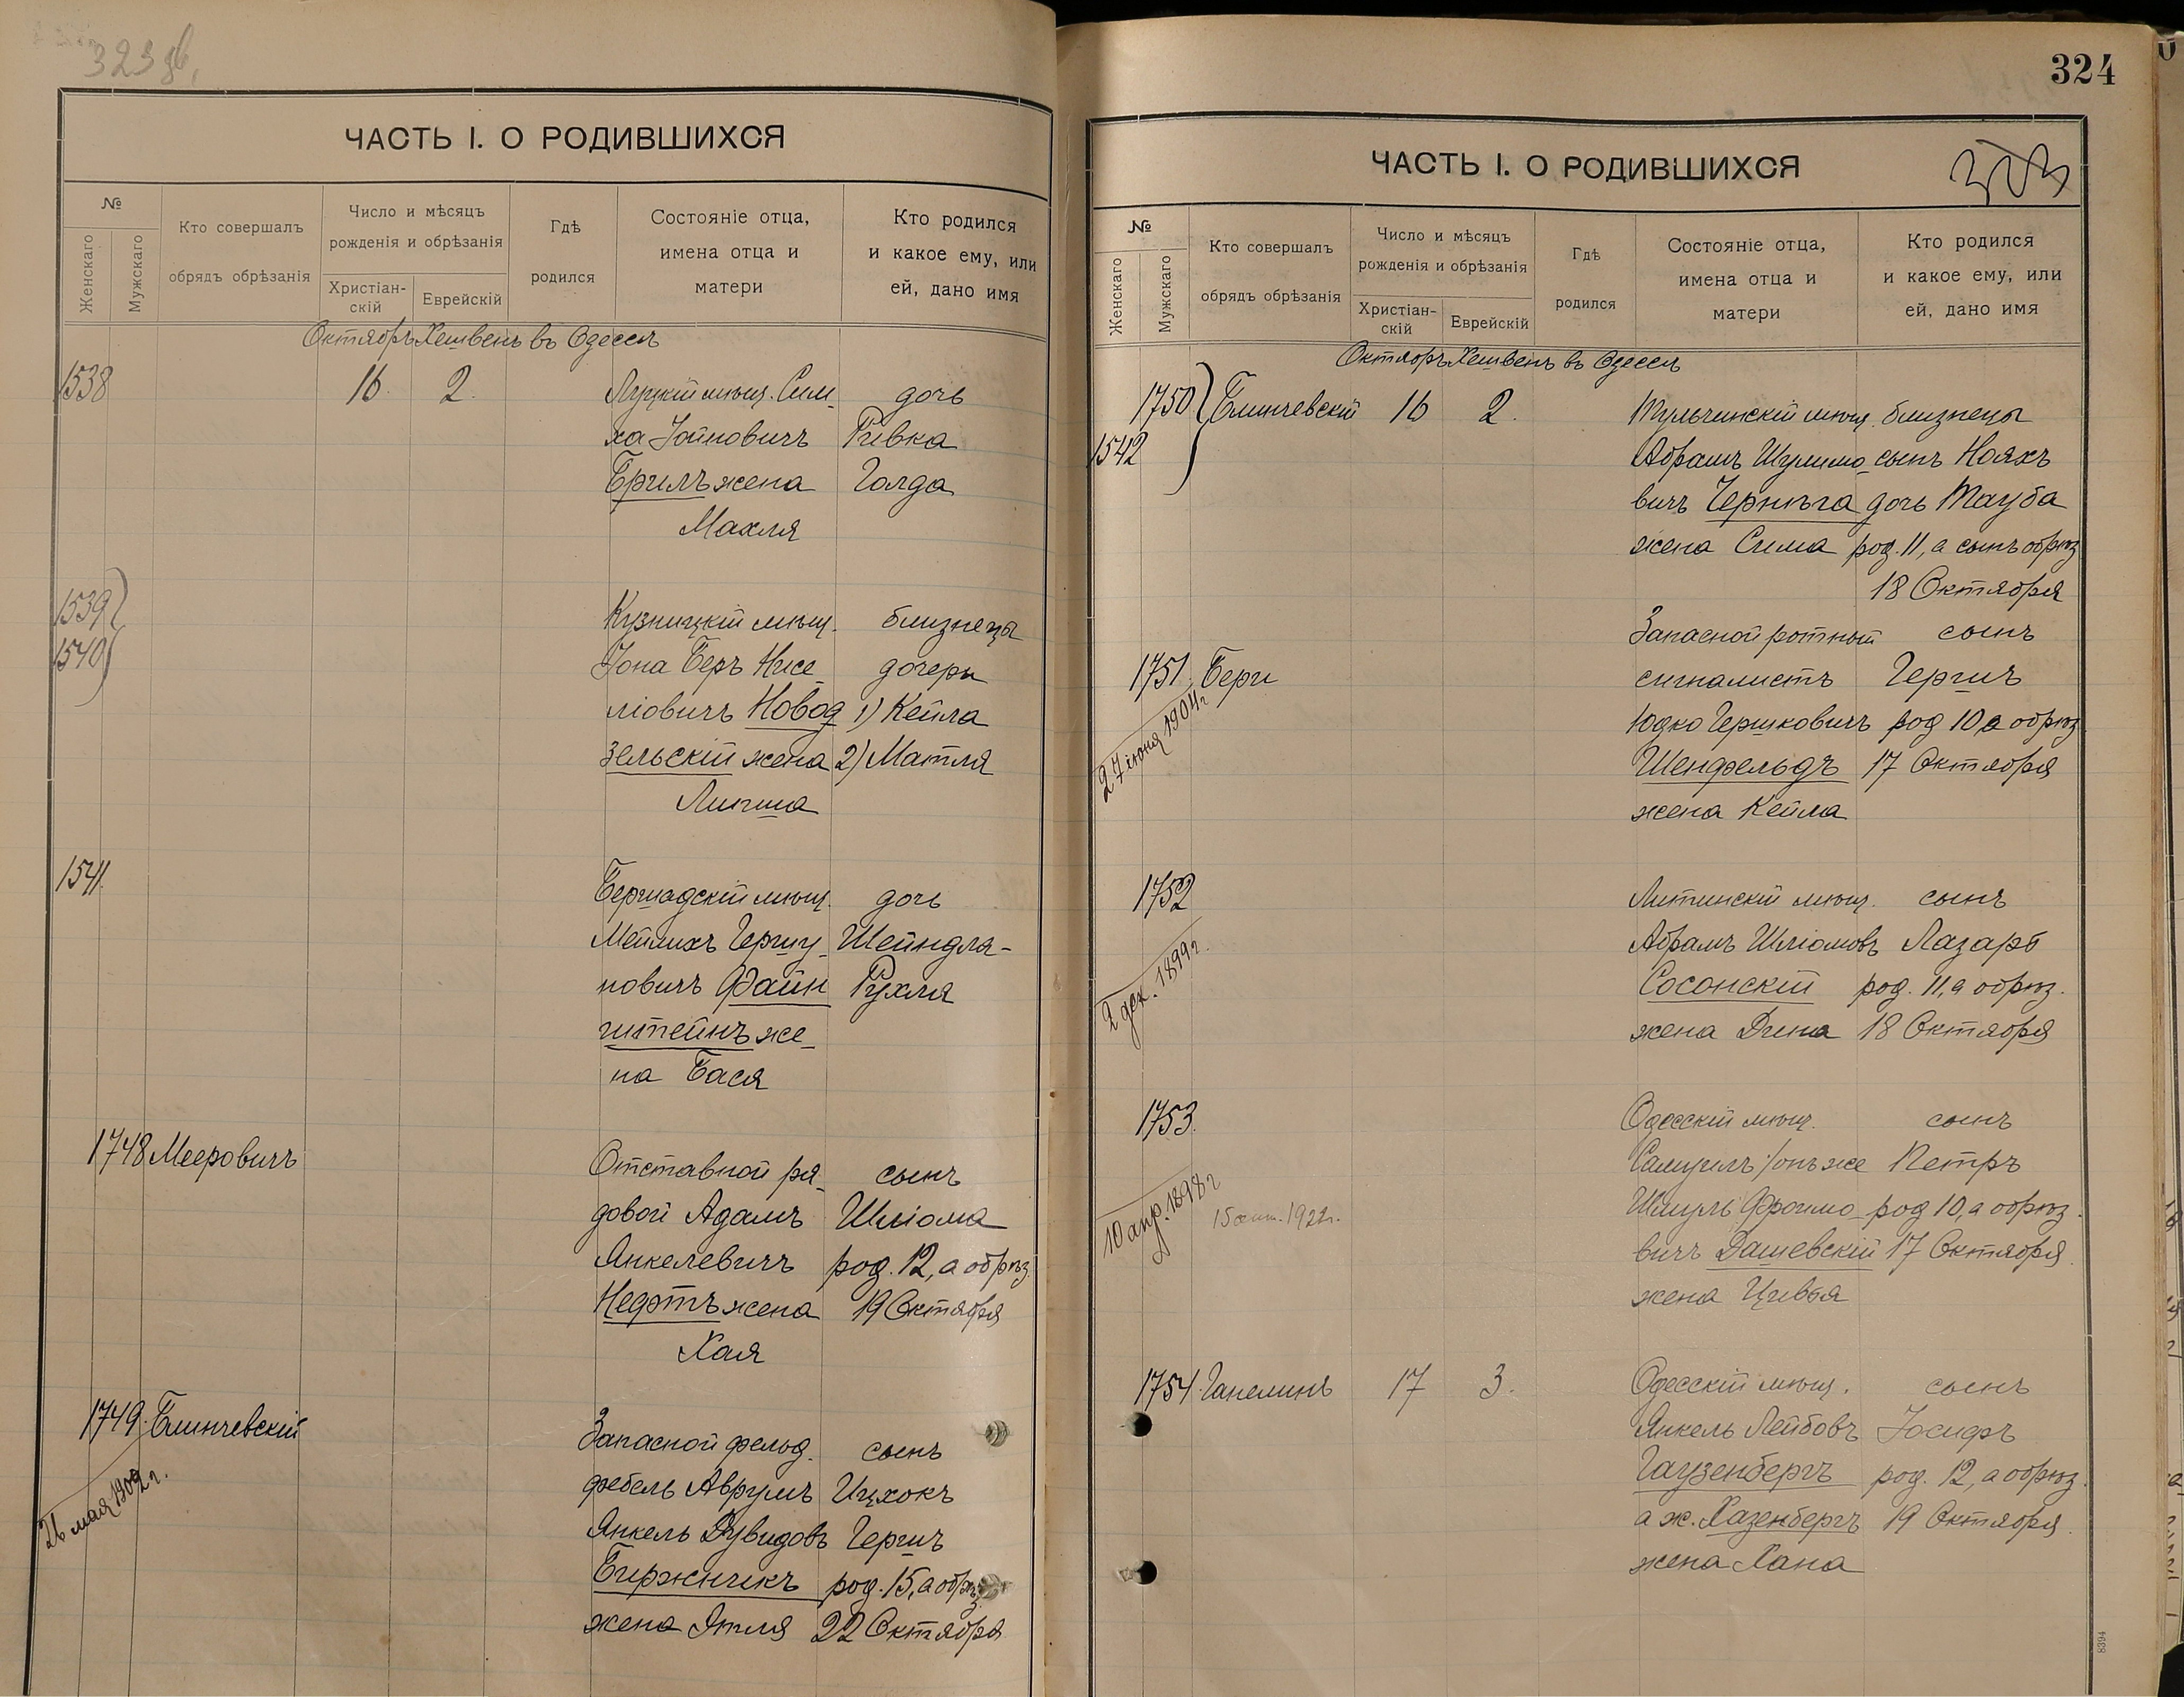 323 об.
ЧАСТЬ I. О РОДИВШИХСЯ
№
Женскаго
Мужскаго
Кто совершалъ
обрядъ обрѣзанія
Число и мѣсяцъ
рожденія и обрѣзанія
Христіан-
скій
Еврейскій
Гдѣ
родился
Состояніе отца,
имена отца и
матери
Кто родился
и какое ему, или
ей, дано имя
Октябрь Хешвенъ въ Одессѣ
1538 16 2. Луцкій мѣщ. Сим- дочь
ха Іойновичъ Ривка
Брилъ жена Голда
Махля
1539 Кузницкій мѣщ. близнецы
1540 Іона Беръ Нисе- дочери
ліовичъ Новод 1) Кейла
зельскій жена 2) Матля
Липша
1541. Бершадскій мѣщ. дочь
Мейлихъ Гершу- Шейндля-
новичъ Файн Рухля
штейнъ же-
на Бася
1748 Мееровичъ Отставной ря- сынъ
довой Адамъ Шліома
Янкелевичъ род. 12, а обрѣз.
Нефтъ жена 19 Октября
Хая
1749. Блинчевскій Запасной фельд. сынъ
26 мая 1902 г. фебель Аврумъ Ицхокъ
Янкель Дувидовъ Гершъ
Биржникъ род. 15, а обрѣз.
жена Этля 22 Октября
324
ЧАСТЬ I. О РОДИВШИХСЯ
№
Женскаго
Мужскаго
Кто совершалъ
обрядъ обрѣзанія
Число и мѣсяцъ
рожденія и обрѣзанія
Христіан-
скій
Еврейскій
Гдѣ
родился
Состояніе отца,
имена отца и
матери
Кто родился
и какое ему, или
ей, дано имя
Октябрь Хешвенъ въ Одессѣ
1750 Блинчевскій 16 2. Тульчинскій мѣщ. близнецы
1542 Абрамъ Шулимо- сынъ Нояхъ
вичъ Чернѣга дочь Тауба
жена Сима род. 11, а сынъ обрѣз
18 Октября
Запасной ротный сынъ
1751 Берг сигналистъ Гершъ
27 іюня 1904 г. Юдко Гершковичъ род 10 а обрѣз
Шенфельдъ 17 Октября
жена Кейла
1752 Литинскій мѣщ. сынъ
2 дек. 1899 г. Абрамъ Шліомовъ Лазарь
Сосонскій род. 11, а обрѣз.
жена Дина 18 Октября
1753. Одесскій мѣщ. сынъ
Самуилъ /онъ же Петръ
10 апр. 1898 г. 1922 г. Шмуль Фроимо- род 10, а обрѣз.
вичъ Дашевскій 17 Октября
жена Цивья
1754. Ганелинъ 17 3. Одесскій мѣщ. сынъ
Янкель Лейбовъ Іосифъ
Гаузенбергъ род. 12, а обрѣз.
а ж. Хазенбергъ 19 Октября
жена Хана
8394